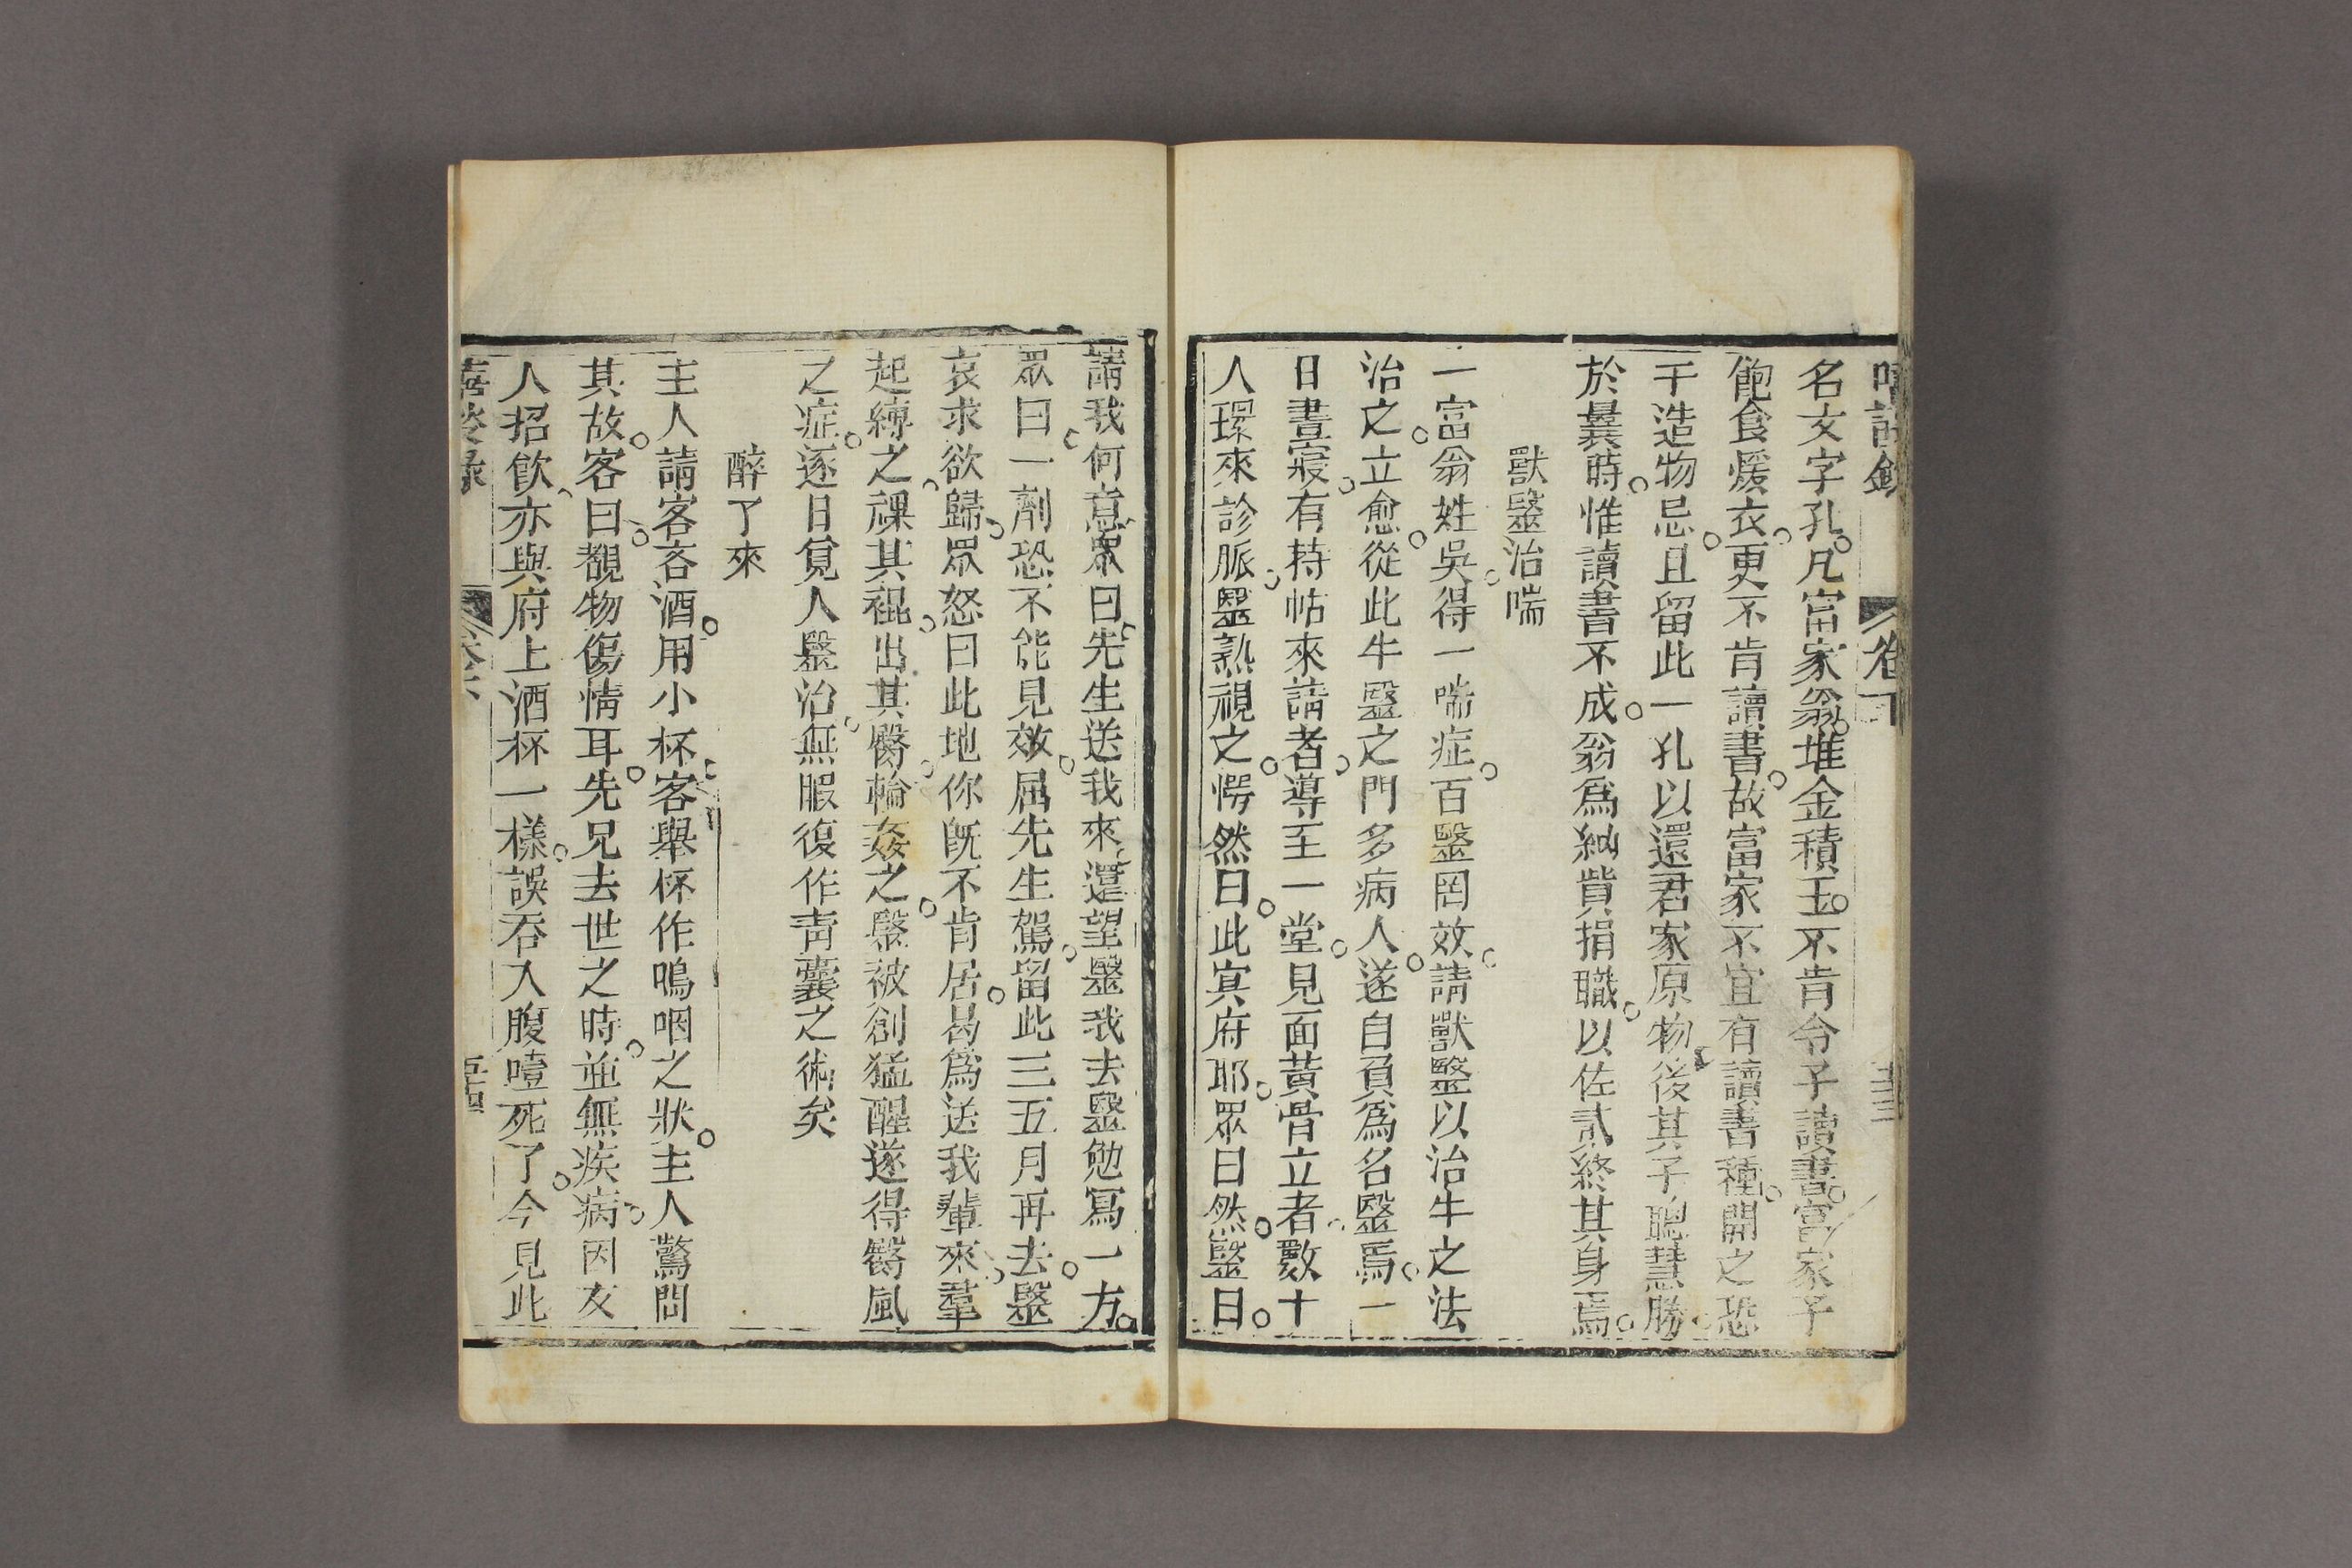 卷下
名文字孔凡富家翁堆金積玉不肯令子讀書富家子
飽食煖衣更不肯讀書故富家不宜有讀書種開之恐
干造物忌且留此一孔以還君家原物後其子聰慧勝
於曩時惟讀書不成翁爲納貲捐職以佐貳終其身焉
獸毉治喘
一富翁姓吳得一喘症百毉罔效請獸毉以治牛之法
治之立愈從此牛毉之門多病人遂自負爲名毉焉一
日晝寢有持帖來請者導至一堂見面黃骨立者數十
人環來診脈毉熟視之愕然曰此冥府耶眾曰然毉曰
請我何意眾曰先生送我來還望毉我去毉勉寫一方
眾曰一劑恐不能見效屈先生駕留此三五月再去毉
哀求欲歸眾怒曰此地你旣不肯居曷爲送我輩來羣
起縛之裸其裩出其臀輪姦之毉被創猛醒遂得臀風
之症逐日覓人毉治無暇復作靑囊之術矣
醉了來
主人請客吝酒用小杯客舉杯作嗚咽之狀主人驚問
其故客曰覩物傷情耳先兄去世之時並無疾病因友
人招飮亦與府上酒杯一樣誤吞入腹噎死了今見此